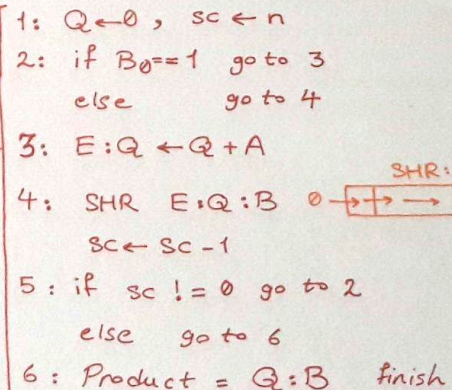 1: Q←0, SC ← n
2: if B0==1 go to 3
else go to 4
3: E:Q ← Q + A
SHR:
4: SHR E:Q:B 0
SC ← SC - 1
5: if SC != 0 go to 2
else go to 6
6: Product = Q:B finish